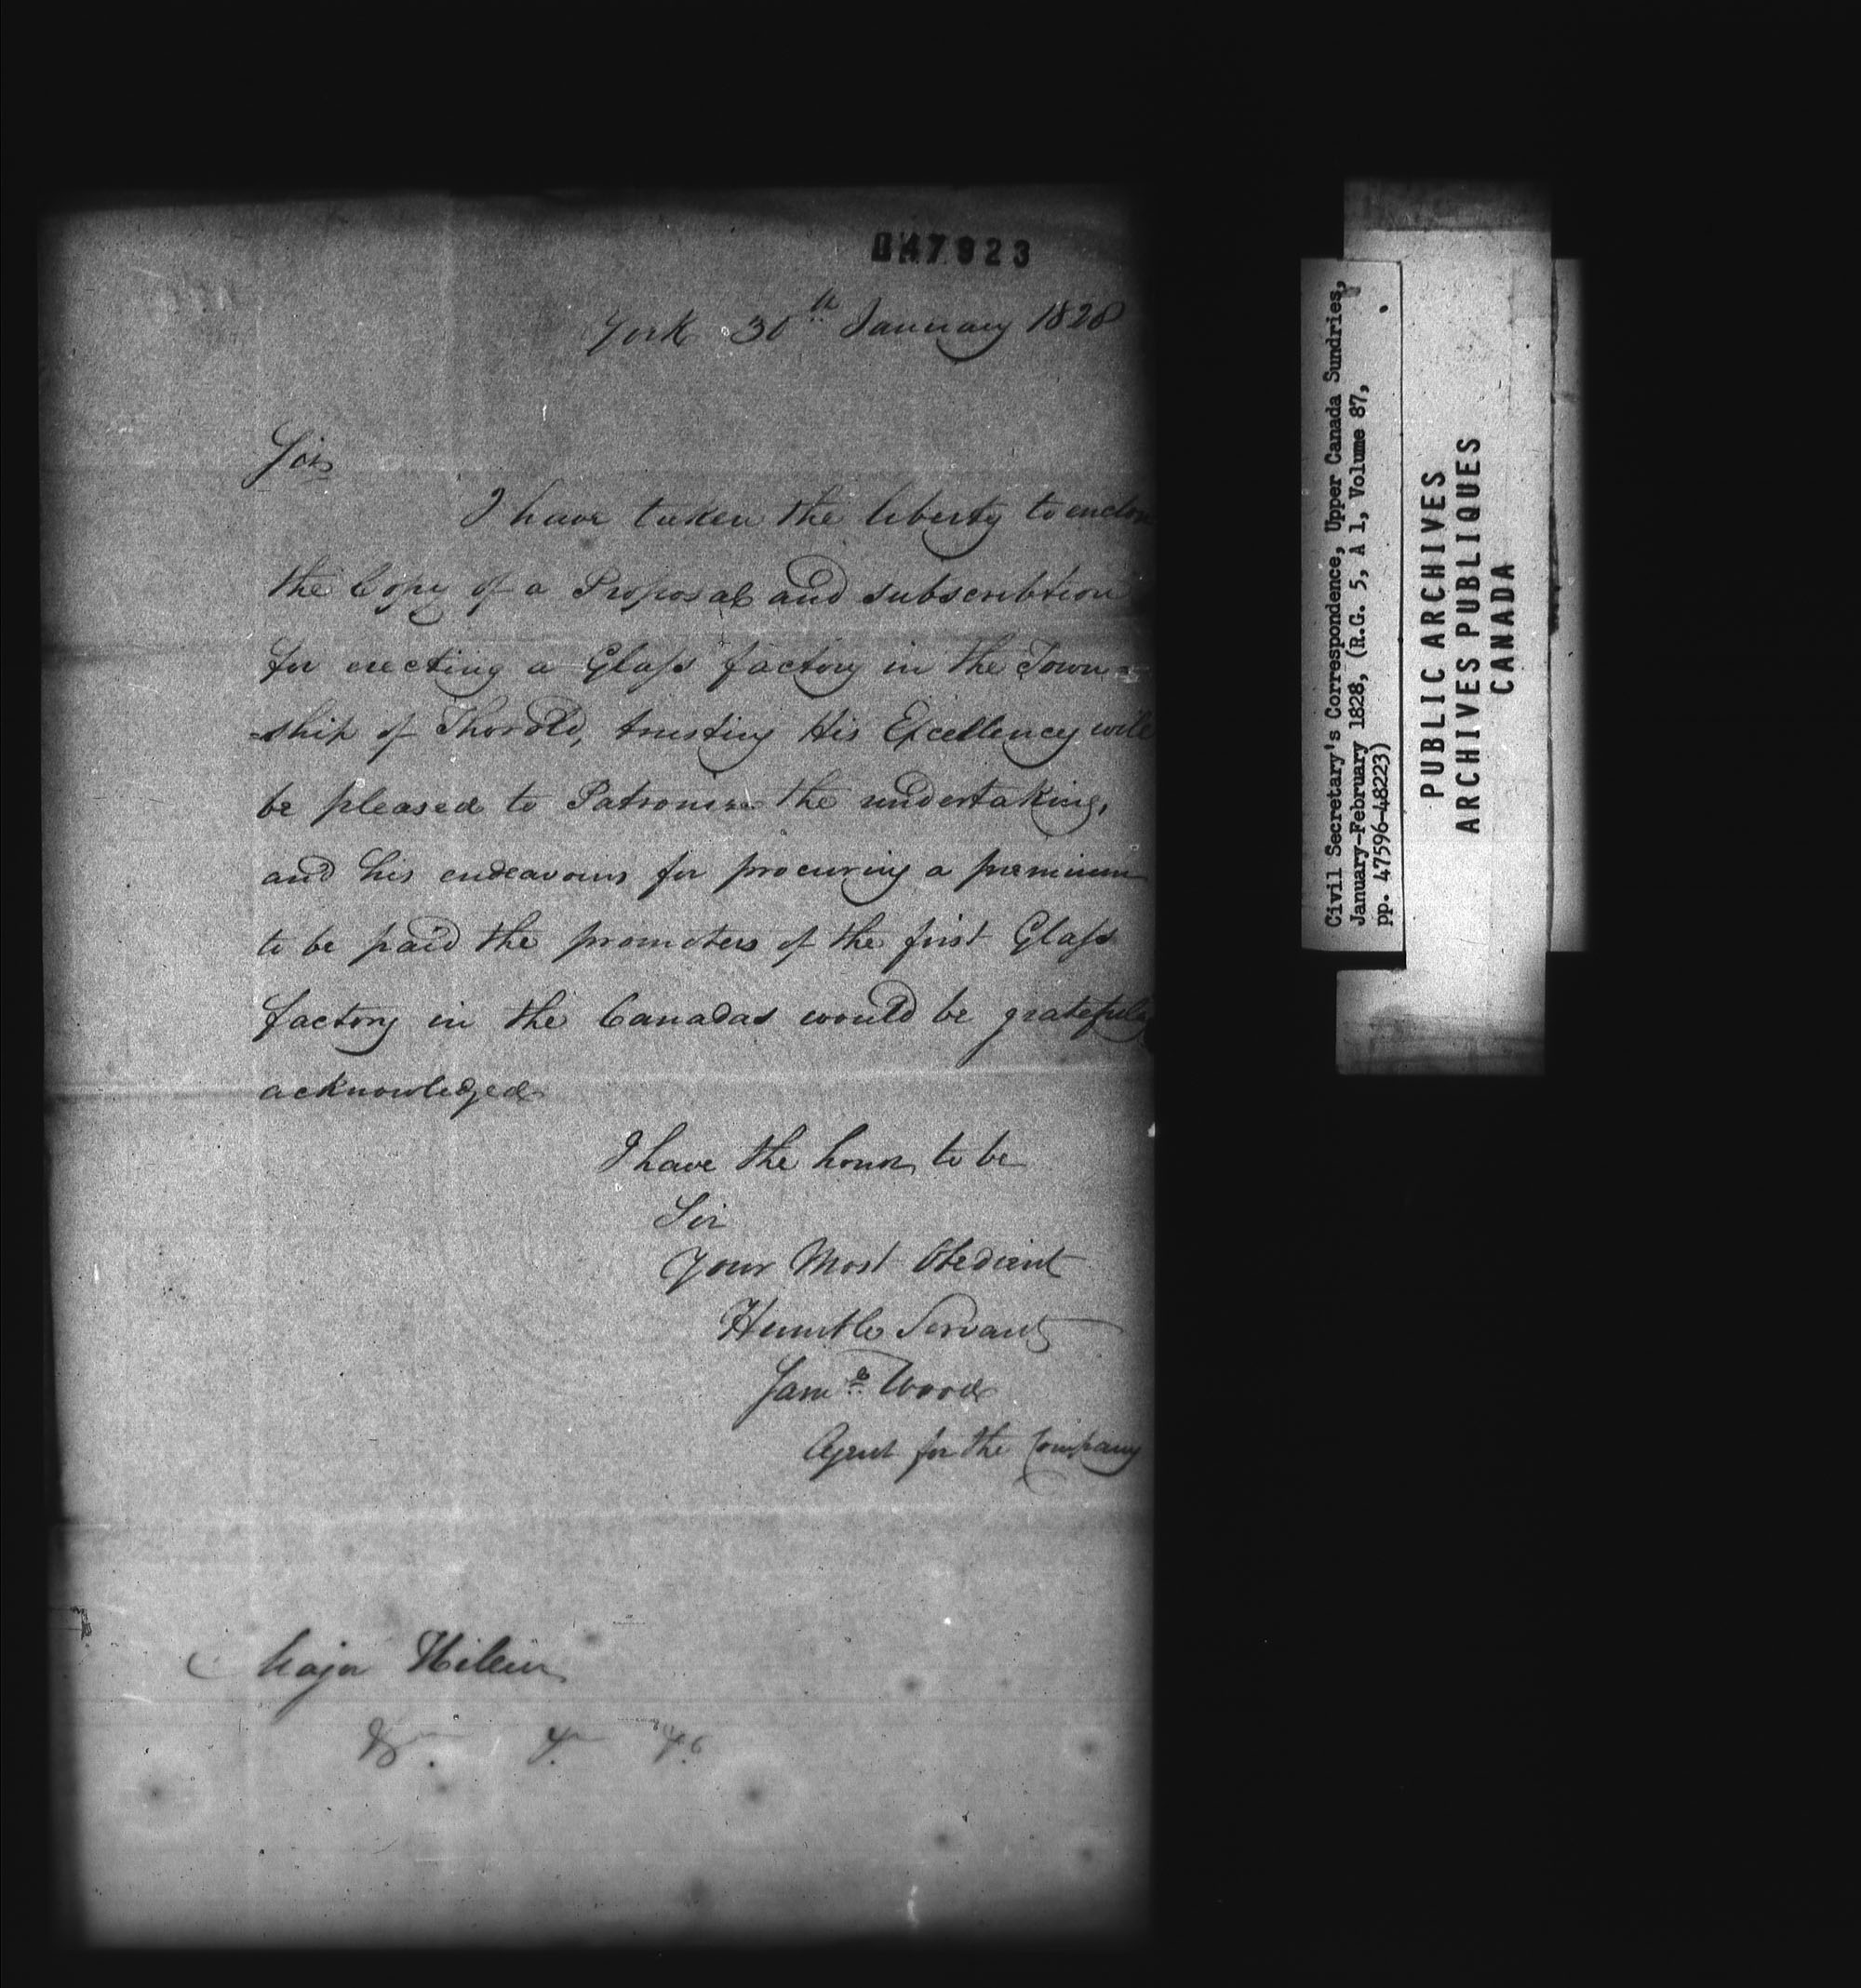 047923
York 30th January 1828
Sir
I have taken the liberty to enclose
the Copy of a Proposal and subscribtion
for erecting a Glass factory in the Town=
=ship of Thorold, trusting His Excellency will
be pleased to Patronise the undertaking,
and his endeavours for procuring a premium
to be paid the promoters of the first Glass
factory in the Canadas would be gratefully
acknowledged
I have the honor to be
Sir
Your Most Obedient
Humble Servant
Saml Wood
Agent for the Company
Major Hillier
&c &c &c
Civil Secretary's Correspondence, Upper Canada Sundries,
January-February 1828, (R.G. 5, A 1, Volume 87,
pp. 47596-48223)
PUBLIC ARCHIVES
ARCHIVES PUBLIQUES
CANADA